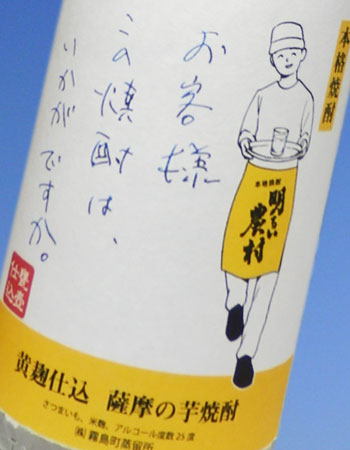 本格焼酎
お客様
この焼酎は、
いかがですか。
本格焼酎
明るい
農村
甕壺
仕込
黄麹仕込 薩摩の芋焼酎
さつまいも、米麹、アルコール度数25度
㈱霧島町蒸留所